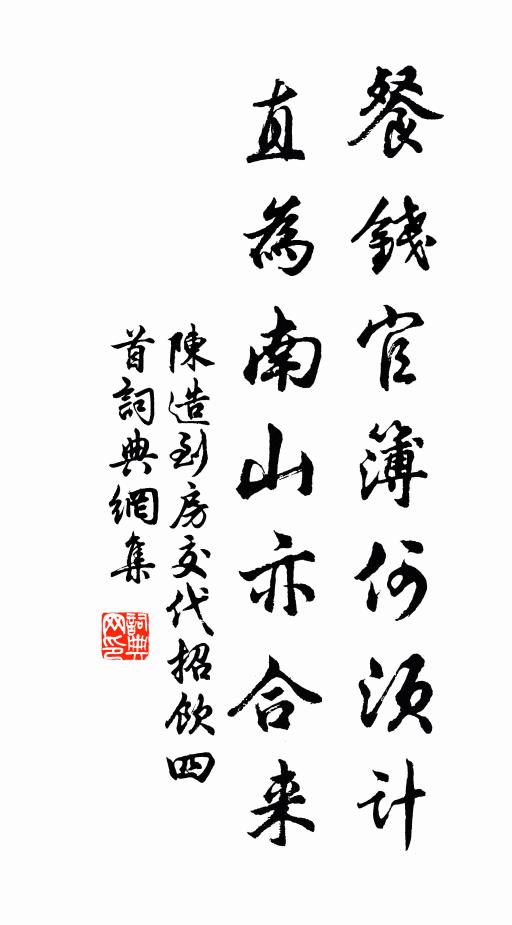 餐錢官簿何須計
直為南山亦合来
陳造到房交代招飲四
首詞典網集
詞典
网印